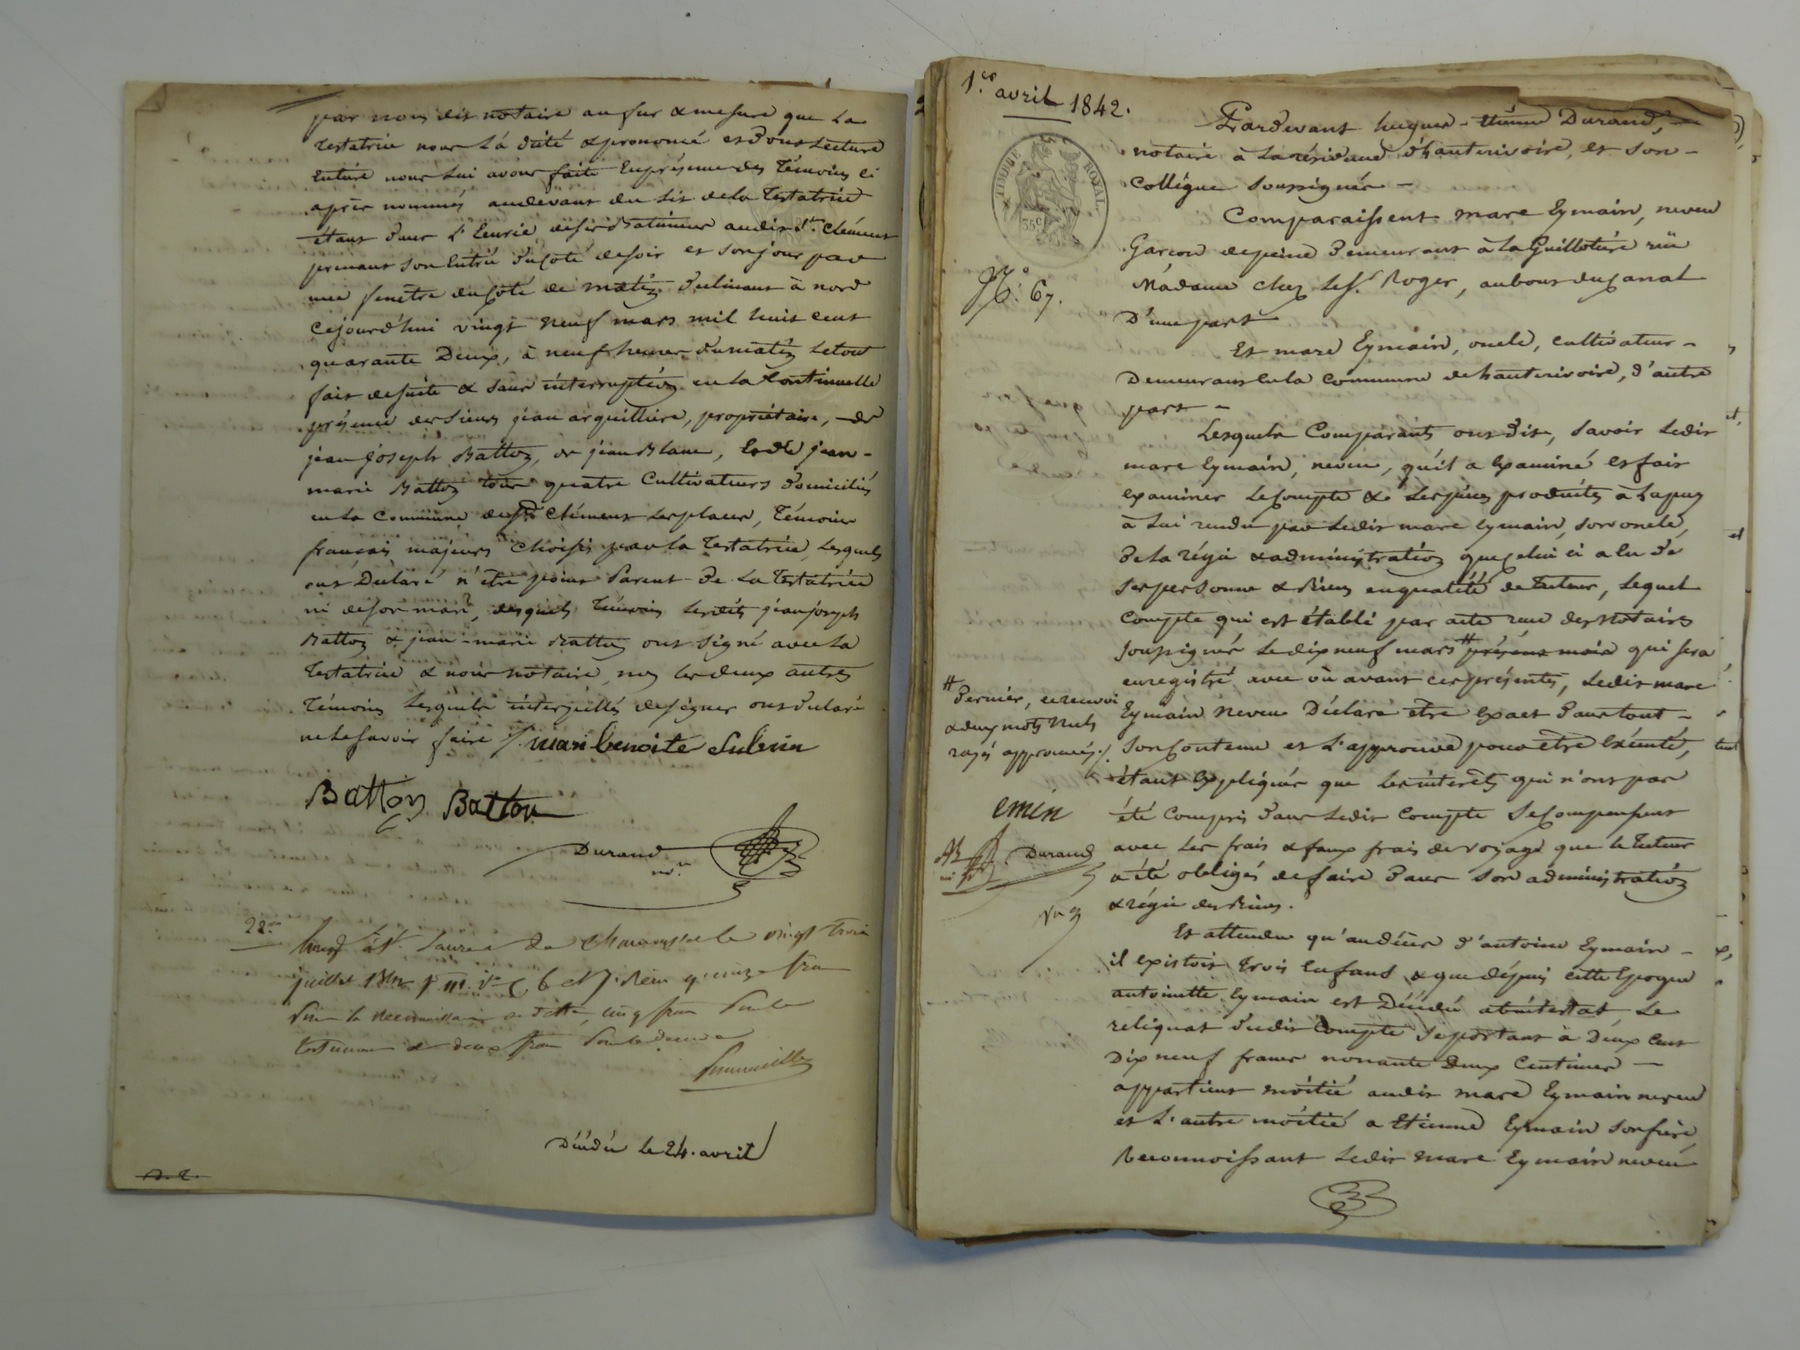 par nous dit notaire au fur & mesure que la
testatrice nous l'a dicté & prononcé et dont lecture
entière nous lui avons faite en présence des témoins ci
après nommés au devant du lit de la testatrice
étant dans l' désir Batiment audit St. Clément
prenant son entrée du coté de soir et son jour par
une fenêtre du coté de matin declinant à nord
Cejourd'hui vingt neuf mars mil huit cent
quarante Deux, à neuf heures du matin le tout
fait de suite & sans interruption en la Continuelle
présence des sieurs jean arquilliere, propriétaire, – de
jean joseph Batton, de jean Blanc, et de jean –
marie Batton tous quatre Cultivateurs domiciliés
en la Commune de St. Clément les places, témoins
français majeurs choisis par la testatrice, lesquels
ont Déclaré n'être point Parent de la testatrice
ni de son mari, desquels témoins lesdits jean joseph
Batton & jean-marie Batton ont signé avec la
testatrice & nous notaire, non les deux autres
témoins lesquels interpellés de signer ont déclaré
ne le savoir faire ./ mari benoite Subrin
Batton Batton
Durand
nre.
22 ..
à St. Laurent de Chamousset le vingt trois
juillet 1842 f 111 Vo C. 6 et 7. Reçu quinze fran
Pour la reconnaissance de dette, cinq fran Pour le
testament & deux fran Pour le décime
Décédée le 24. avril
1er. avril 1842.
TIMBRE ROYAL.
35c
No. 67.
Pardevant hugues-Etienne Durand, –
notaire à la résidence d'hauterivoire, et son –
Collégue soussignés –
Comparaissent marc Eymain, neveu
Garçon de peine demeurant à la Guillotière rüe
Madame chez le Sr. Roger, au bout du canal
D'une part
Et marc Eymain, oncle, cultivateur –
Demeurant en la commune de hauterivoire, d'autre
part –
Lesquels Comparants ont dit, savoir ledit
marc Eymain, neveu, qu'il a Examiné et fait
Examiner le compte & les pièces produites à l'apuy
à lui rendu par ledit marc Eymain, son oncle,
de la régie & administration que celui ci a eu de
ses personne & Biens en qualité de tuteur, lequel
Compte qui est établi par acte reçu des Notaires
soussignés le dix neuf mars # présent mois qui sera
enregistré avec ou avant ces présentes, ledit marc
Eymain Neveu Déclare être Exact dans tout –
son contenu et l'approuve pour être Exécuté,
étant Expliqués que les intérêts qui n'ont pas
été Compris dans ledit Compte se Compensent
avec les frais & faux frais de voyage que le tuteur
a été obligés de faire dans son administration
& régie des Biens.
Et attendu qu'au décès d'antoine Eymain –
il existoit trois Enfans & que depuis cette Epoque
antoinette Eymain est Décédée abintestat le
reliquat dudit Compte se portant à Deux Cent
Dix neuf francs nonante deux Centimes –
appartient moitié audit marc Eymain neveu
et l'autre moitié a Etienne Eymain son frère,
Reconnoissant ledit marc Eymain neveu
# Dernier, ce renvoi
& deux mots nuls
rayés approuvés ./.
emin
Durand